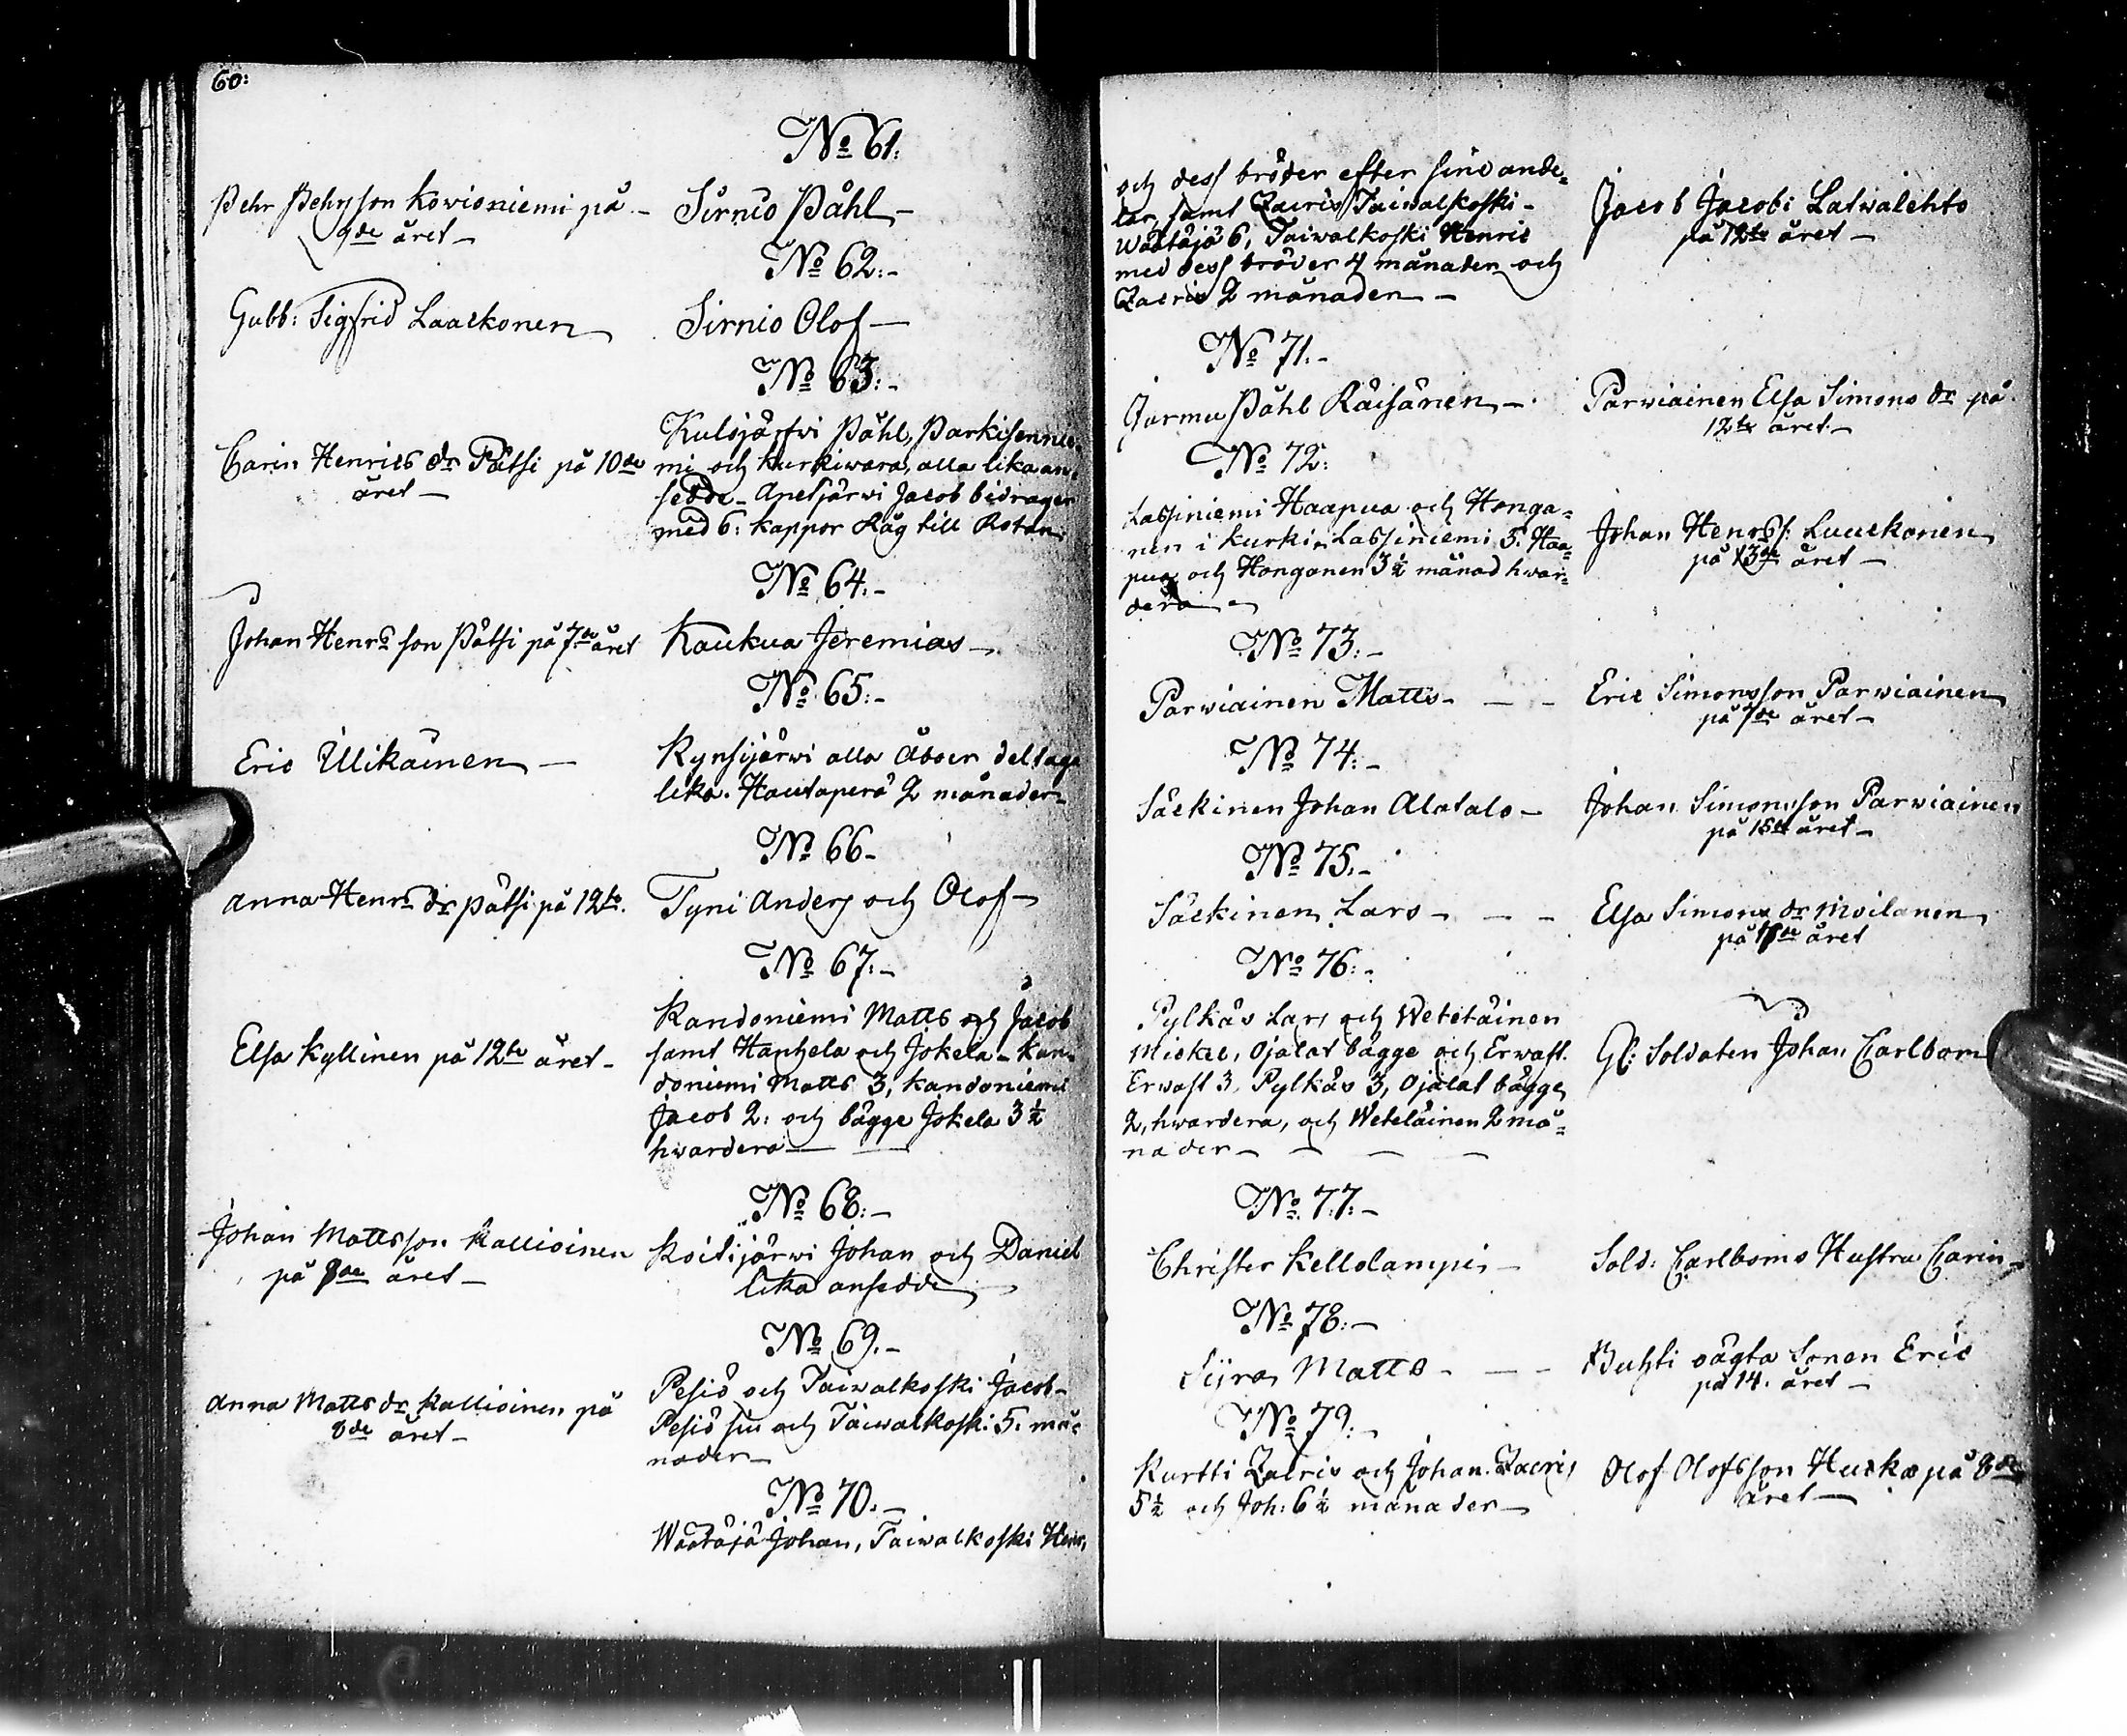 60:
No 61:
Pehr Pehrsson Kovioniemi på - Sirniö Påhl -
9de året -
No 62:-
Gubb: Sigfrid Laackonen Sirnio Olof -
No 63:-
Kulsjärfvi Påhl, Parkisennie-
Carin Henrics dr Pätsi på 10de mi och Kurkiwara, alla lika an-
året - sedde - Apetjärwi Jacob bidrager
med 6: kappor Råg till Rotan
No 64:-
Johan Henrs son Pätsi på 7de året Kaukua Jeremias -
No 65:-
Eric Ulikainen - Kynsijärwi alla Åboer deltaga
lika. Hautaperä 2 månader -
No 66-
Anna Henrs dr Pätsi på 12te. Tyni Anders och Olof -
No 67:-
Kandoniemi Matts och Jacob
Elsa Kyllinen på 12te året - samt Hanhela och Jokela - Kan-
doniemi Matts 3, Kandoniemi
Jacob 2: och bägge Jokela 3½
hwardera -
No 68:-
Johan Mattsson Kallioinen Koitijärwi Johan och Daniel
på 8de året - lika ansedde
No 69.-
Anna Matts dr Kallioinen på Pesiö och Taiwalkoski Jacob -
8de året - Pesiö siu och Taiwalkoski 5. må-
nader -
No 70.-
Wäätäjä Johan, Taiwalkoski Henr,
och dess bröder efter sine ande-
lar, samt Zacris Taiwalkoski - Jacob Jacobi Latwalehto
Wäätäjä 6, Taiwalkoski Henric på 12te året -
med dess bröder 4 månader och
Zacris 2 månader -
No 71.-
Jurmu Påhl Räisänen - Parwiainen Elsa Simons dr på
12te året -
No 72:
Lassiniemi Haapua och Honga-
nen i Kurki. Lassiniemi 5. Haa- Johan Henrs s: Luuckonen
pua och Honganen 3½ månad hwar- på 13de året -
dera -
No 73:-
Parwiainen Matts - - - Eric Simonsson Parwiainen
på 7de året -
No 74:-
Säckinen Johan Alatalo - Johan Simonsson Parwiainen
på 15de året -
No 75.-
Säckinen Lars - - - Elsa Simons dr Moilanen
på året
No 76:-
Pylkäs Lars och Wetetäinen
Mickel, Ojalat bägge och Erwast. Gl: Soldaten Johan Carlbom
Erwast 3, Pylkäs 3, Ojalat bägge
2, hwardera, och Weteläinen 2 må-
nader - - - -
No 77:-
Christer Kellolampi - Sold: Carlboms Hustru Carin -
No 78:-
Siira Matts - - - Buhti oägta Sonen Eric
på 14. året -
No 79:-
Kurtti Zacris och Johan. Zacris Olof Olofsson Huska på 8de
5½ och Joh: 6½ månader - året -